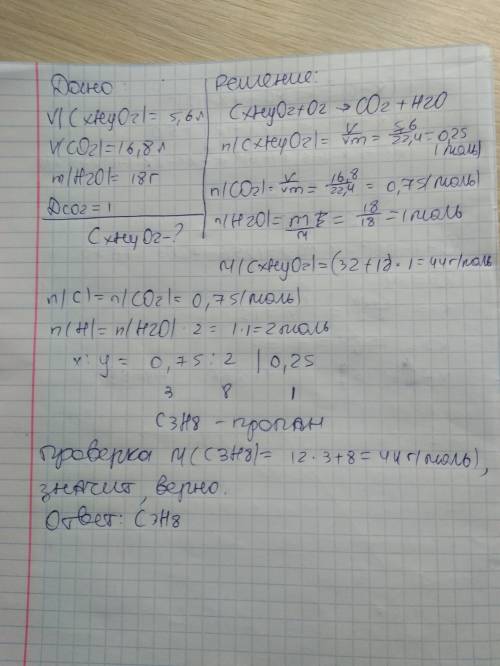 Дано
V(CxHyOz)= 5,6 л
V(CO2)=16,8 л
m(H2O)= 18г
Dco2=1
CxHyOz-?
Решение:
CxHyOz+O2 → CO2+H2O
n(CxHyOz)= V/Vm = 5,6/22,4 = 0,25 (моль)
n(CO2)= V/Vm = 16,8/22,4 = 0,75(моль)
n(H2O)= m/M = 18/18 = 1 моль
M(CxHyOz)=(32+12)·1=44г/моль
n(C)=n(CO2)= 0,75(моль)
n(H)=n(H2O)·2= 1·1=2моль
x:y= 0,75:2 | 0,25
3 8 1
C3H8 - пропан
Проверка M(C3H8)= 12·3+8=44г(моль),
значит, верно.
Ответ: C3H8